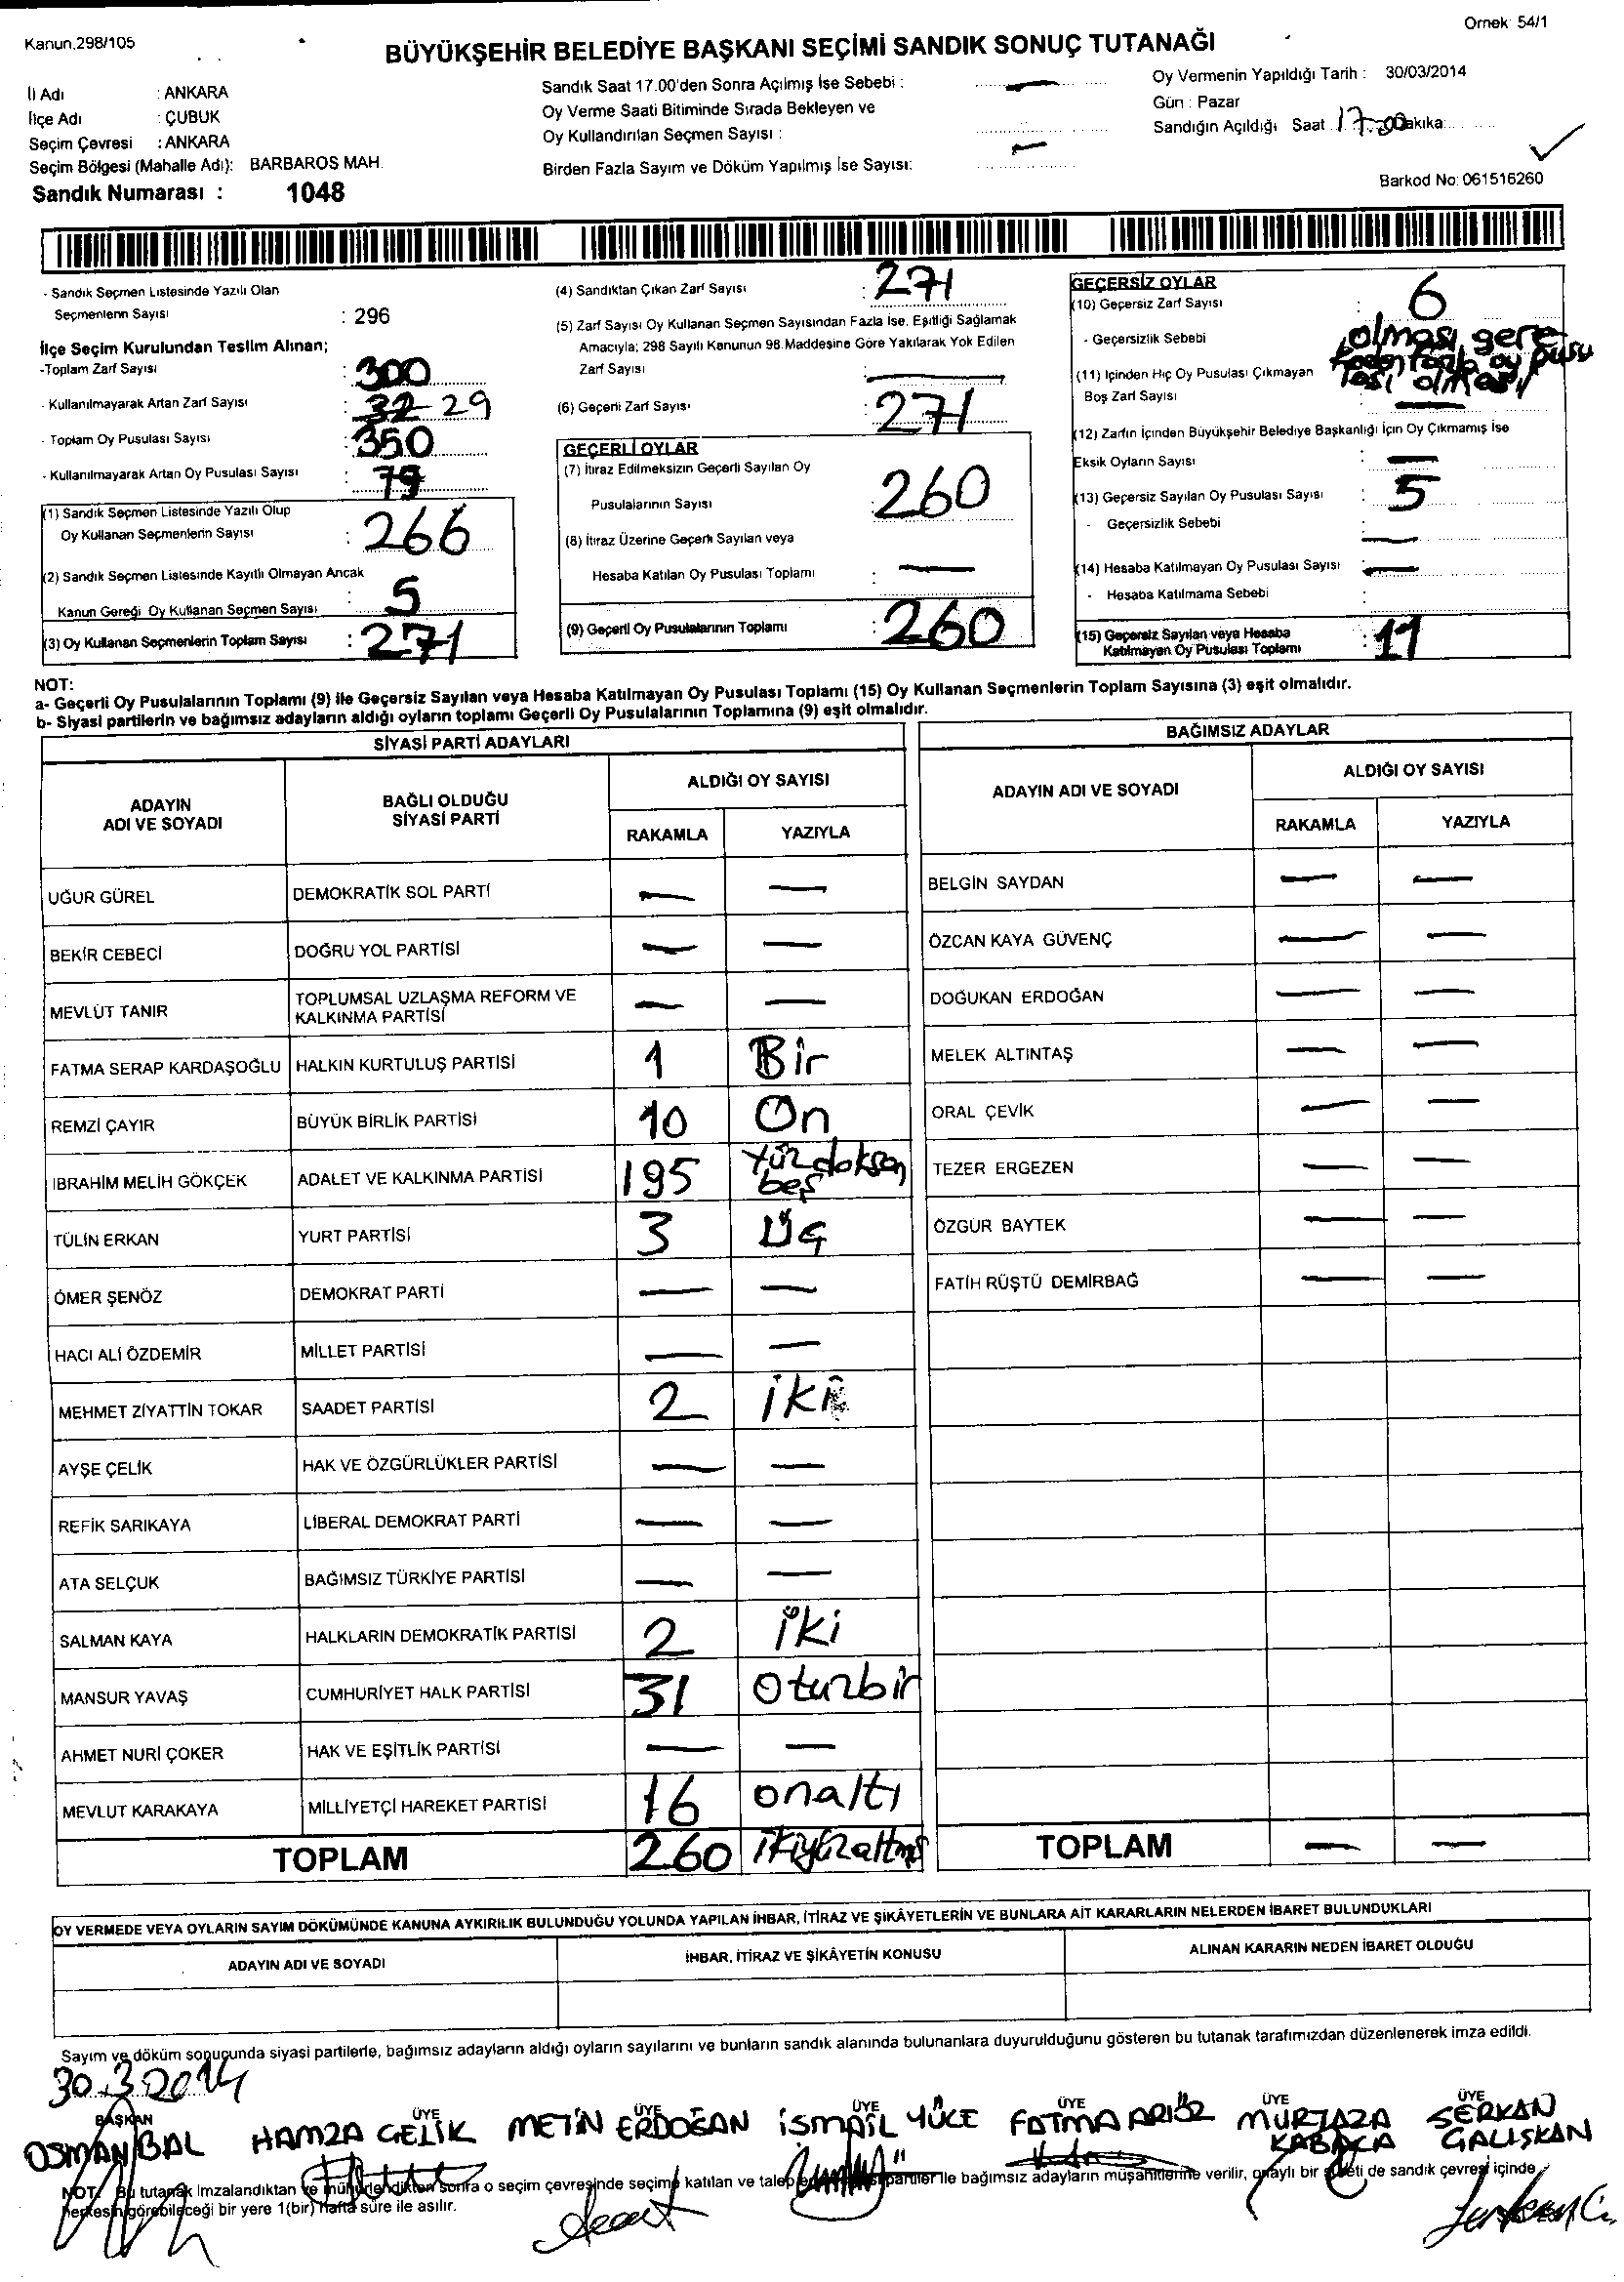 Kanun.298/105
Örnek: 54/1
BÜYÜKŞEHİR BELEDİYE BAŞKANI SEÇİMİ SANDIK SONUÇ TUTANAĞI
İl Adı : ANKARA
İlçe Adı : ÇUBUK
Seçim Çevresi : ANKARA
Seçim Bölgesi (Mahalle Adı): BARBAROS MAH.
Sandık Numarası : 1048
Sandık Saat 17.00'den Sonra Açılmış İse Sebebi : —
Oy Verme Saati Bitiminde Sırada Bekleyen ve
Oy Kullandırılan Seçmen Sayısı :
Birden Fazla Sayım ve Döküm Yapılmış İse Sayısı: —
Oy Vermenin Yapıldığı Tarih : 30/03/2014
Gün : Pazar
Sandığın Açıldığı Saat 17:00 Dakika:
Barkod No: 061516260
- Sandık Seçmen Listesinde Yazılı Olan
Seçmenlerin Sayısı : 296
İlçe Seçim Kurulundan Teslim Alınan;
-Toplam Zarf Sayısı : 300
- Kullanılmayarak Artan Zarf Sayısı : 32 29
- Toplam Oy Pusulası Sayısı : 350
- Kullanılmayarak Artan Oy Pusulası Sayısı : 79
(1) Sandık Seçmen Listesinde Yazılı Olup
Oy Kullanan Seçmenlerin Sayısı : 266
(2) Sandık Seçmen Listesinde Kayıtlı Olmayan Ancak
Kanun Gereği Oy Kullanan Seçmen Sayısı : 5
(3) Oy Kullanan Seçmenlerin Toplam Sayısı : 271
(4) Sandıktan Çıkan Zarf Sayısı : 271
(5) Zarf Sayısı Oy Kullanan Seçmen Sayısından Fazla İse, Eşitliği Sağlamak
Amacıyla; 298 Sayılı Kanunun 98.Maddesine Göre Yakılarak Yok Edilen
Zarf Sayısı : —
(6) Geçerli Zarf Sayısı : 271
GEÇERLİ OYLAR
(7) İtiraz Edilmeksizin Geçerli Sayılan Oy
Pusulalarının Sayısı : 260
(8) İtiraz Üzerine Geçerli Sayılan veya
Hesaba Katılan Oy Pusulası Toplamı : —
(9) Geçerli Oy Pusulalarının Toplamı : 260
GEÇERSİZ OYLAR
(10) Geçersiz Zarf Sayısı : 6
- Geçersizlik Sebebi : olması gere
kenden fazla oy pusu
lası olması
(11) İçinden Hiç Oy Pusulası Çıkmayan
Boş Zarf Sayısı : —
(12) Zarfın İçinden Büyükşehir Belediye Başkanlığı İçin Oy Çıkmamış İse
Eksik Oyların Sayısı : —
(13) Geçersiz Sayılan Oy Pusulası Sayısı : 5
- Geçersizlik Sebebi : —
(14) Hesaba Katılmayan Oy Pusulası Sayısı : —
- Hesaba Katılmama Sebebi :
(15) Geçersiz Sayılan veya Hesaba
Katılmayan Oy Pusulası Toplamı : 11
NOT:
a- Geçerli Oy Pusulalarının Toplamı (9) ile Geçersiz Sayılan veya Hesaba Katılmayan Oy Pusulası Toplamı (15) Oy Kullanan Seçmenlerin Toplam Sayısına (3) eşit olmalıdır.
b- Siyasi partilerin ve bağımsız adayların aldığı oyların toplamı Geçerli Oy Pusulalarının Toplamına (9) eşit olmalıdır.
SİYASİ PARTİ ADAYLARI
ADAYIN ADI VE SOYADI
BAĞLI OLDUĞU SİYASİ PARTİ
ALDIĞI OY SAYISI
RAKAMLA YAZIYLA
UĞUR GÜREL DEMOKRATİK SOL PARTİ — —
BEKİR CEBECİ DOĞRU YOL PARTİSİ — —
MEVLÜT TANIR TOPLUMSAL UZLAŞMA REFORM VE KALKINMA PARTİSİ — —
FATMA SERAP KARDAŞOĞLU HALKIN KURTULUŞ PARTİSİ 1 Bir
REMZİ ÇAYIR BÜYÜK BİRLİK PARTİSİ 10 On
İBRAHİM MELİH GÖKÇEK ADALET VE KALKINMA PARTİSİ 195 Yüzdoksan beş
TÜLİN ERKAN YURT PARTİSİ 3 Üç
ÖMER ŞENÖZ DEMOKRAT PARTİ — —
HACI ALİ ÖZDEMİR MİLLET PARTİSİ — —
MEHMET ZİYATTİN TOKAR SAADET PARTİSİ 2 iki
AYŞE ÇELİK HAK VE ÖZGÜRLÜKLER PARTİSİ — —
REFİK SARIKAYA LİBERAL DEMOKRAT PARTİ — —
ATA SELÇUK BAĞIMSIZ TÜRKİYE PARTİSİ — —
SALMAN KAYA HALKLARIN DEMOKRATİK PARTİSİ 2 iki
MANSUR YAVAŞ CUMHURİYET HALK PARTİSİ 31 Oturbir
AHMET NURİ ÇOKER HAK VE EŞİTLİK PARTİSİ — —
MEVLUT KARAKAYA MİLLİYETÇİ HAREKET PARTİSİ 16 onaltı
TOPLAM 260 ikiyüzaltmış
BAĞIMSIZ ADAYLAR
ADAYIN ADI VE SOYADI
ALDIĞI OY SAYISI
RAKAMLA YAZIYLA
BELGİN SAYDAN — —
ÖZCAN KAYA GÜVENÇ — —
DOĞUKAN ERDOĞAN — —
MELEK ALTINTAŞ — —
ORAL ÇEVİK — —
TEZER ERGEZEN — —
ÖZGÜR BAYTEK — —
FATİH RÜŞTÜ DEMİRBAĞ — —
TOPLAM — —
OY VERMEDE VEYA OYLARIN SAYIM DÖKÜMÜNDE KANUNA AYKIRILIK BULUNDUĞU YOLUNDA YAPILAN İHBAR, İTİRAZ VE ŞİKÂYETLERİN VE BUNLARA AİT KARARLARIN NELERDEN İBARET BULUNDUKLARI
ADAYIN ADI VE SOYADI
İHBAR, İTİRAZ VE ŞİKÂYETİN KONUSU
ALINAN KARARIN NEDEN İBARET OLDUĞU
Sayım ve döküm sonucunda siyasi partilerle, bağımsız adayların aldığı oyların sayılarını ve bunların sandık alanında bulunanlara duyurulduğunu gösteren bu tutanak tarafımızdan düzenlenerek imza edildi.
30.3.2014
BAŞKAN ÜYE ÜYE ÜYE ÜYE ÜYE ÜYE
OSMAN BAL HAMZA ÇELİK METİN ERDOĞAN İSMAİL YÜCE FATMA ARIÖZ MURTAZA KABACA SERKAN ÇALIŞKAN
NOT: Bu tutanak İmzalandıktan ve mühürlendikten sonra o seçim çevresinde seçime katılan ve talep partiler ile bağımsız adayların müşahitlerine verilir, onaylı bir sureti de sandık çevresi içinde
herkesin görebileceği bir yere 1(bir) hafta süre ile asılır.